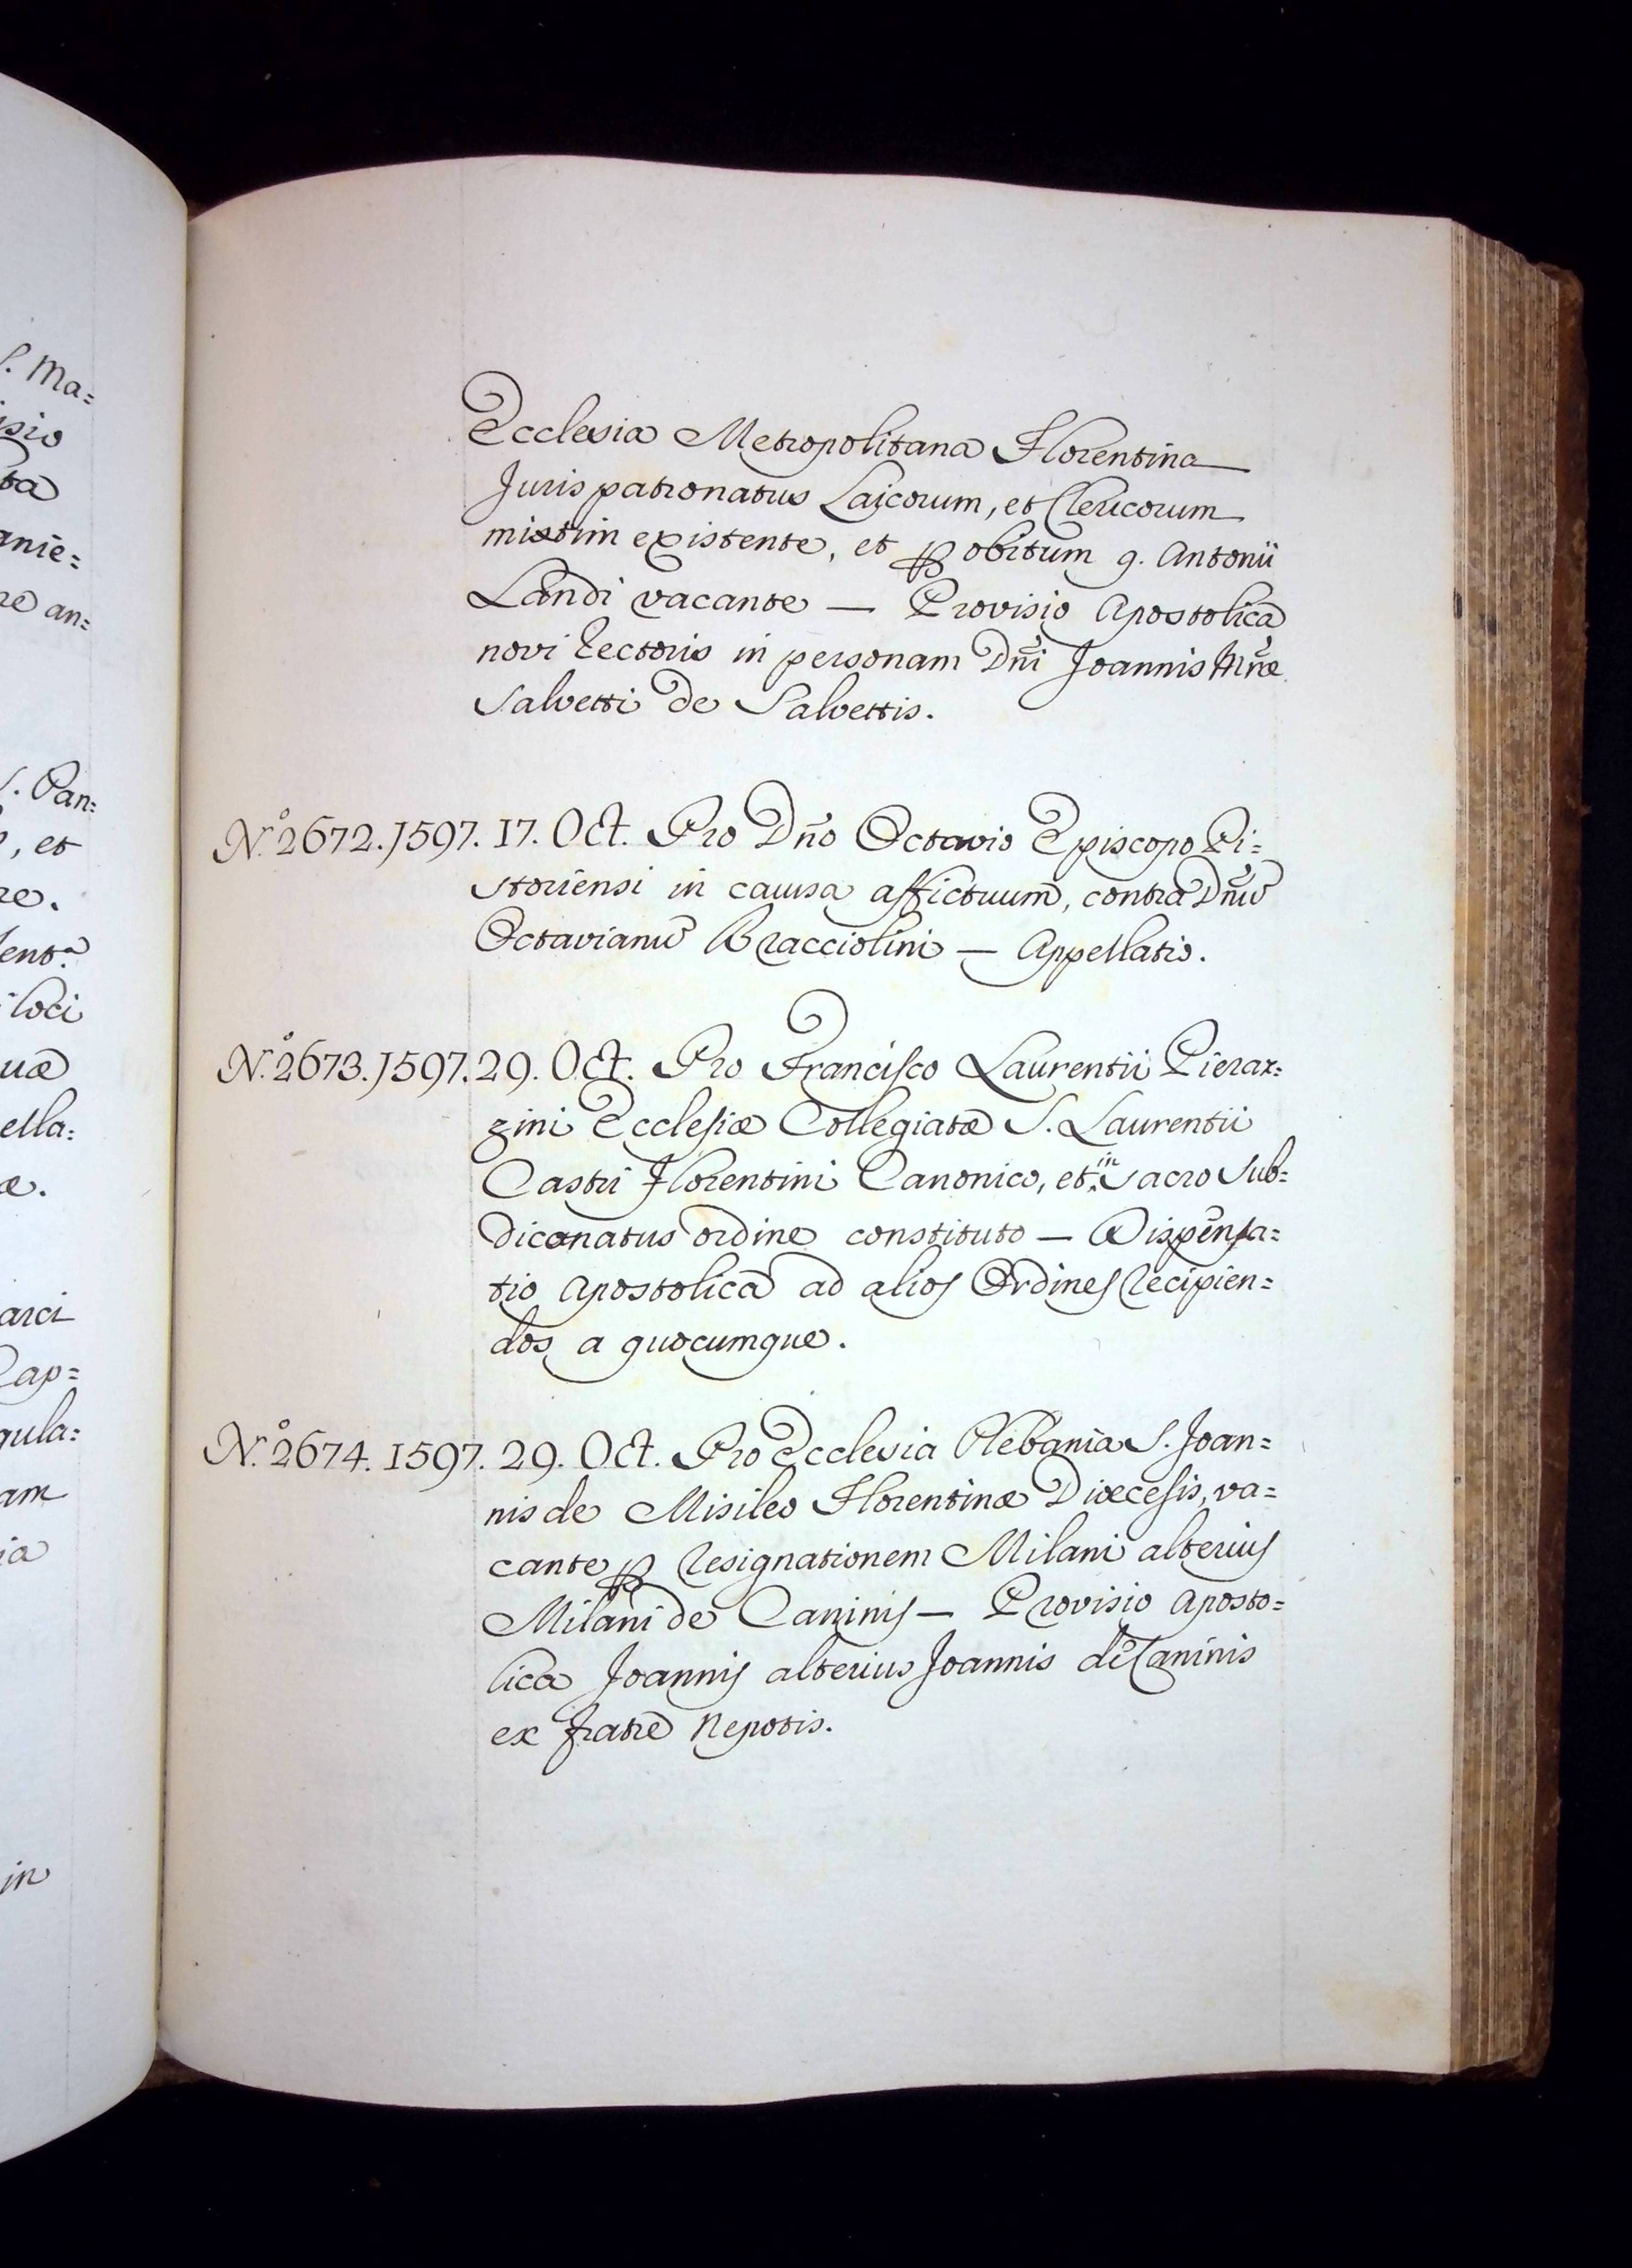 S. Ma=
isio
ta
anie=
re an=
S. Pan=
, et
re.
ent.ª
i loci
uæ
ella:
æ.
arci
Cap=
gula:
am
ia
in
Ecclesia Metropolitana Florentina
Juris patronatus Laicorum, et Clericorum
mixtim existente, et ꝑ obitum q. Antonii
Landi vacante — Provisio Apostolica
novi Rectoris in personam Dñi Joannis Mñæ
Salvetti de Salvettis.
N.º 2672. 1597. 17. Oct. Pro Dño Octavio Episcopo Pi=
storiensi in causa affictuum, contra Dñũ
Octavianũ Bracciolini — Appellatio.
N.º 2673. 1597. 29. Oct. Pro Francisco Laurentii Pieraz=
zini Ecclesiæ Collegiatæ S. Laurentii
Castri Florentini Canonico, et in Sacro Sub=
diconatus ordine constituto — Dispensa=
tio Apostolica ad alios Ordines recipien=
dos a quocumque.
N.º 2674. 1597. 29. Oct. Pro Ecclesia Plebania S. Joan=
nis de Misileo Florentinæ Diœcesis, va=
cante ꝑ resignationem Milani alterius
Milani de Caninis — Provisio Aposto=
lica Joannis alterius Joannis de Caninis
ex fratre Nepotis.